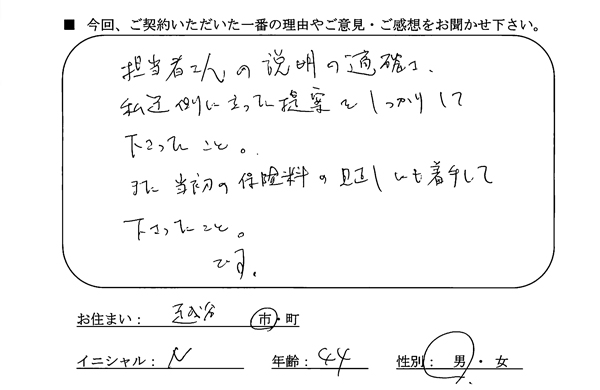 ■ 今回、ご契約いただいた一番の理由やご意見・ご感想をお聞かせ下さい。
担当者さんの説明の適確さ、
私達側に立った提案をしっかりして
下さったこと。
また当初の保険料の見直しにも着手して
下さったこと。
です。
お住まい： 越谷 市・町
イニシャル： N 年齢： 44 性別： 男 ・ 女